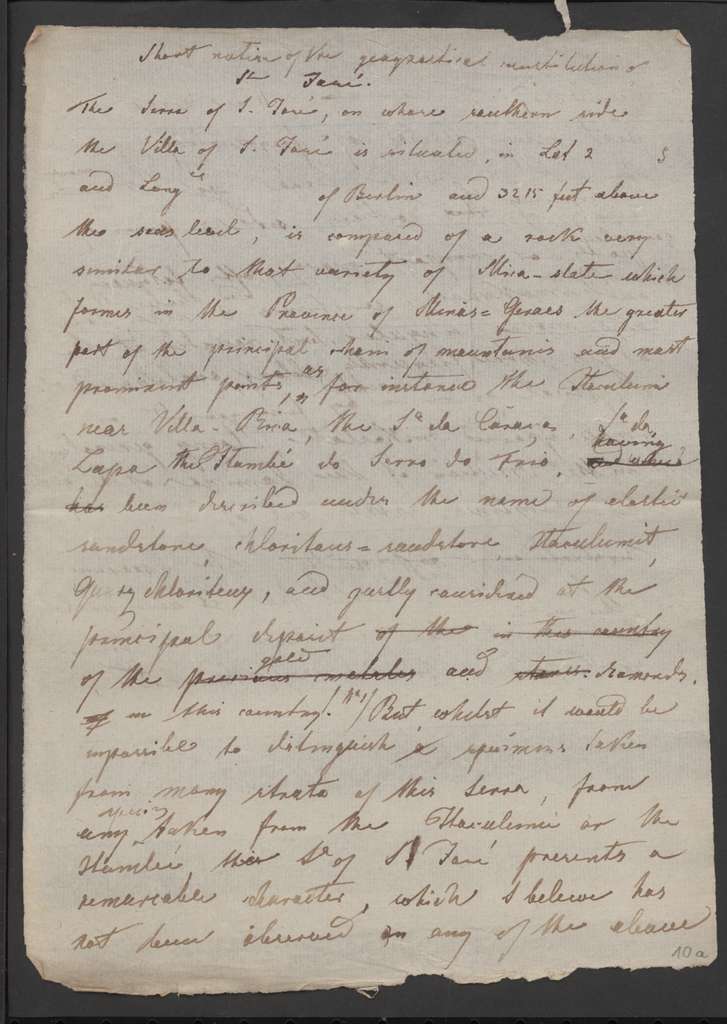 Short notice of the geognostical constitution of
Sn José.
The Serra of S. José, on whose southern side
the Villa of S. José is situated, in Lat 2 S
and Longde of Berlin and 3215 feet above
the seas level, is composed of a rock very
similar to that variety of Mica-slate which
formes in the Province of Minas=Geraes the greater
part of the principal chain of mountains and most
prominent points, as for instance the Itacolumi
near Villa-Rica, the Sa da Caraça, Sa da
Lapa the Itambé do Serro do Frio, having
and which
has been described under the name of elastic
sandstone, chloritous=sandstone, Itacolumit,
Quarz chloriteux, and justly considered as the
principal deposit of the in this country
gold
of the precious metales and stones. diamonds,
in this country. (No 1) But whilst it would be
impossible to distinguish a specimens taken
from many strata of this Serra, from
any taken from the Itacolumi or the
Itambé the Sa of S José presents a
remarcable character, which I believe has
not been observed on any of the above
10a